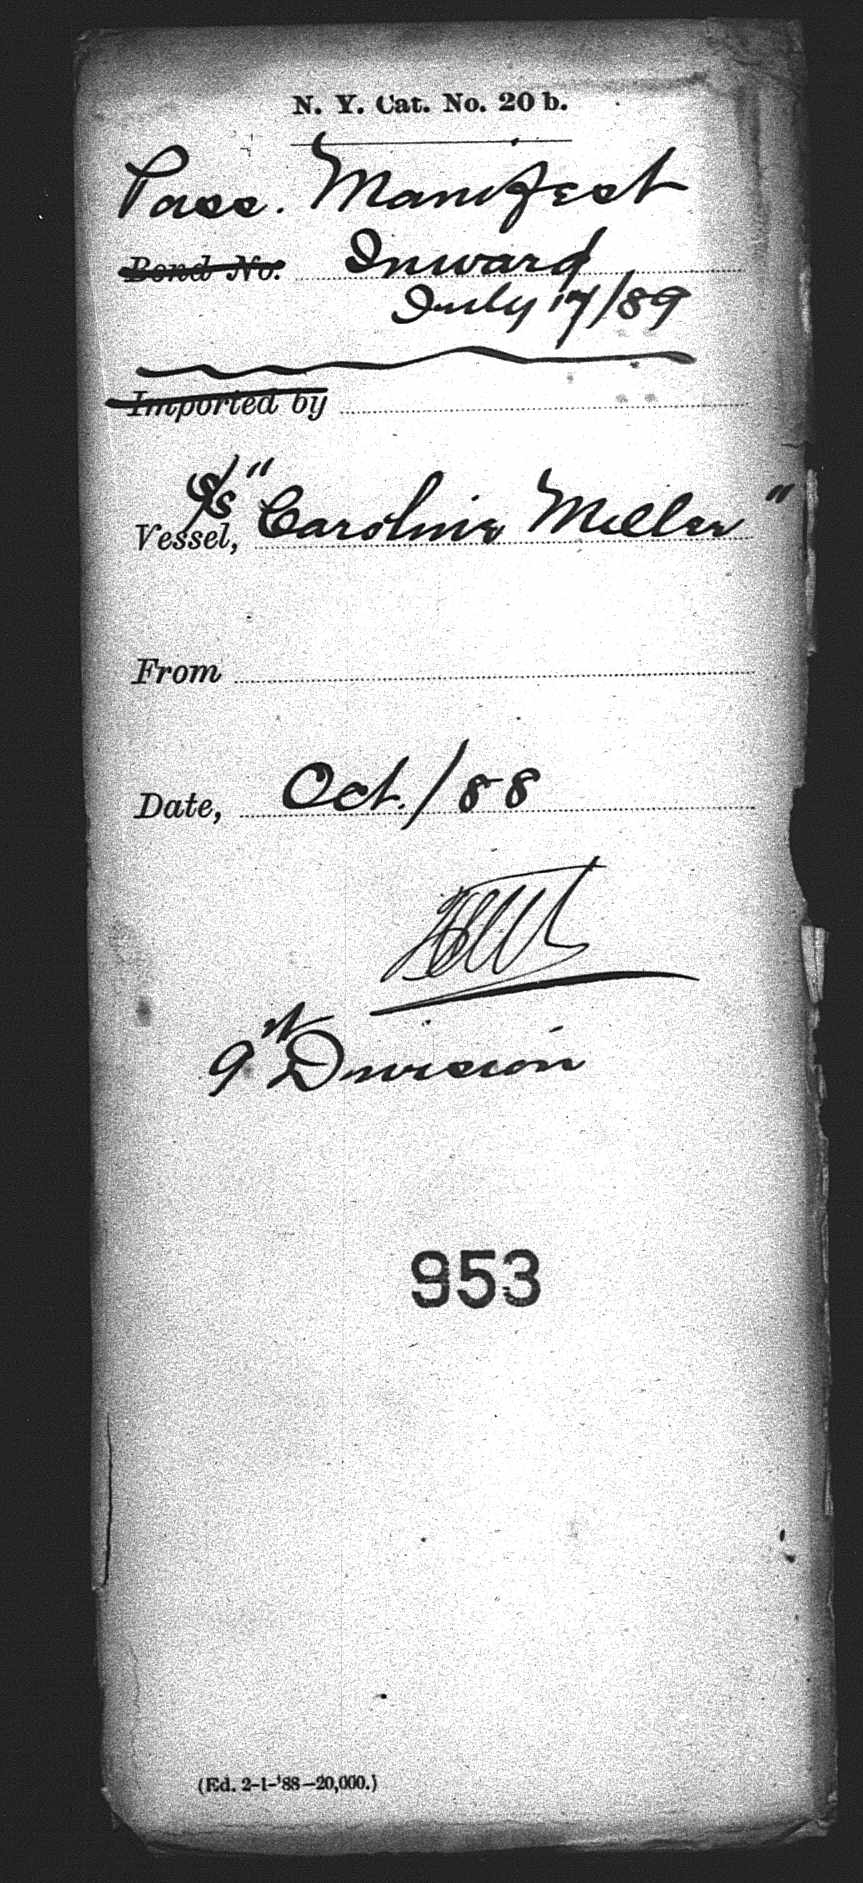 N. Y. Cat. No. 20 b.
Pass. Manifest
Bond No. Inward
July 17/89
Imported by
Vessel, S/S "Caroline Miller"
From
Date, Oct./88
9th Division
953
(Ed. 2-1-'88-20,000.)